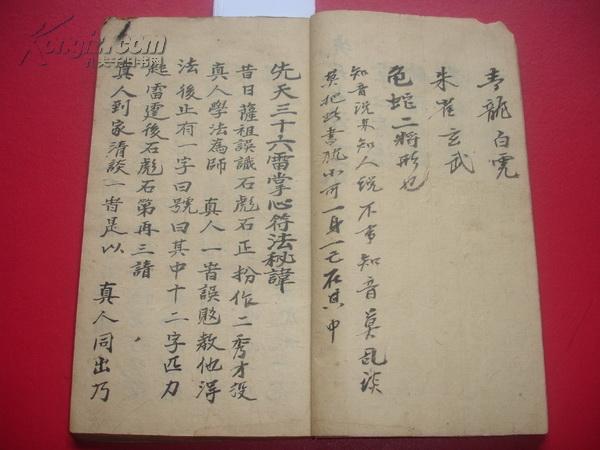 青龍白虎
朱雀玄武
龟蛇二將形也
知音说与知人 不 知音莫乱谈
莫把此書 一身一己在其中
先天三十六雷掌心符法秘諱
昔日薩祖誤識石彪石正扮作二秀才投
真人學法為師 真人一時誤 教他得
法後止有一字曰號曰其中十二字匹力
起雷遲後石彪石第再三請
真人到家清談一 是以 真人同出乃
Kongfin.com